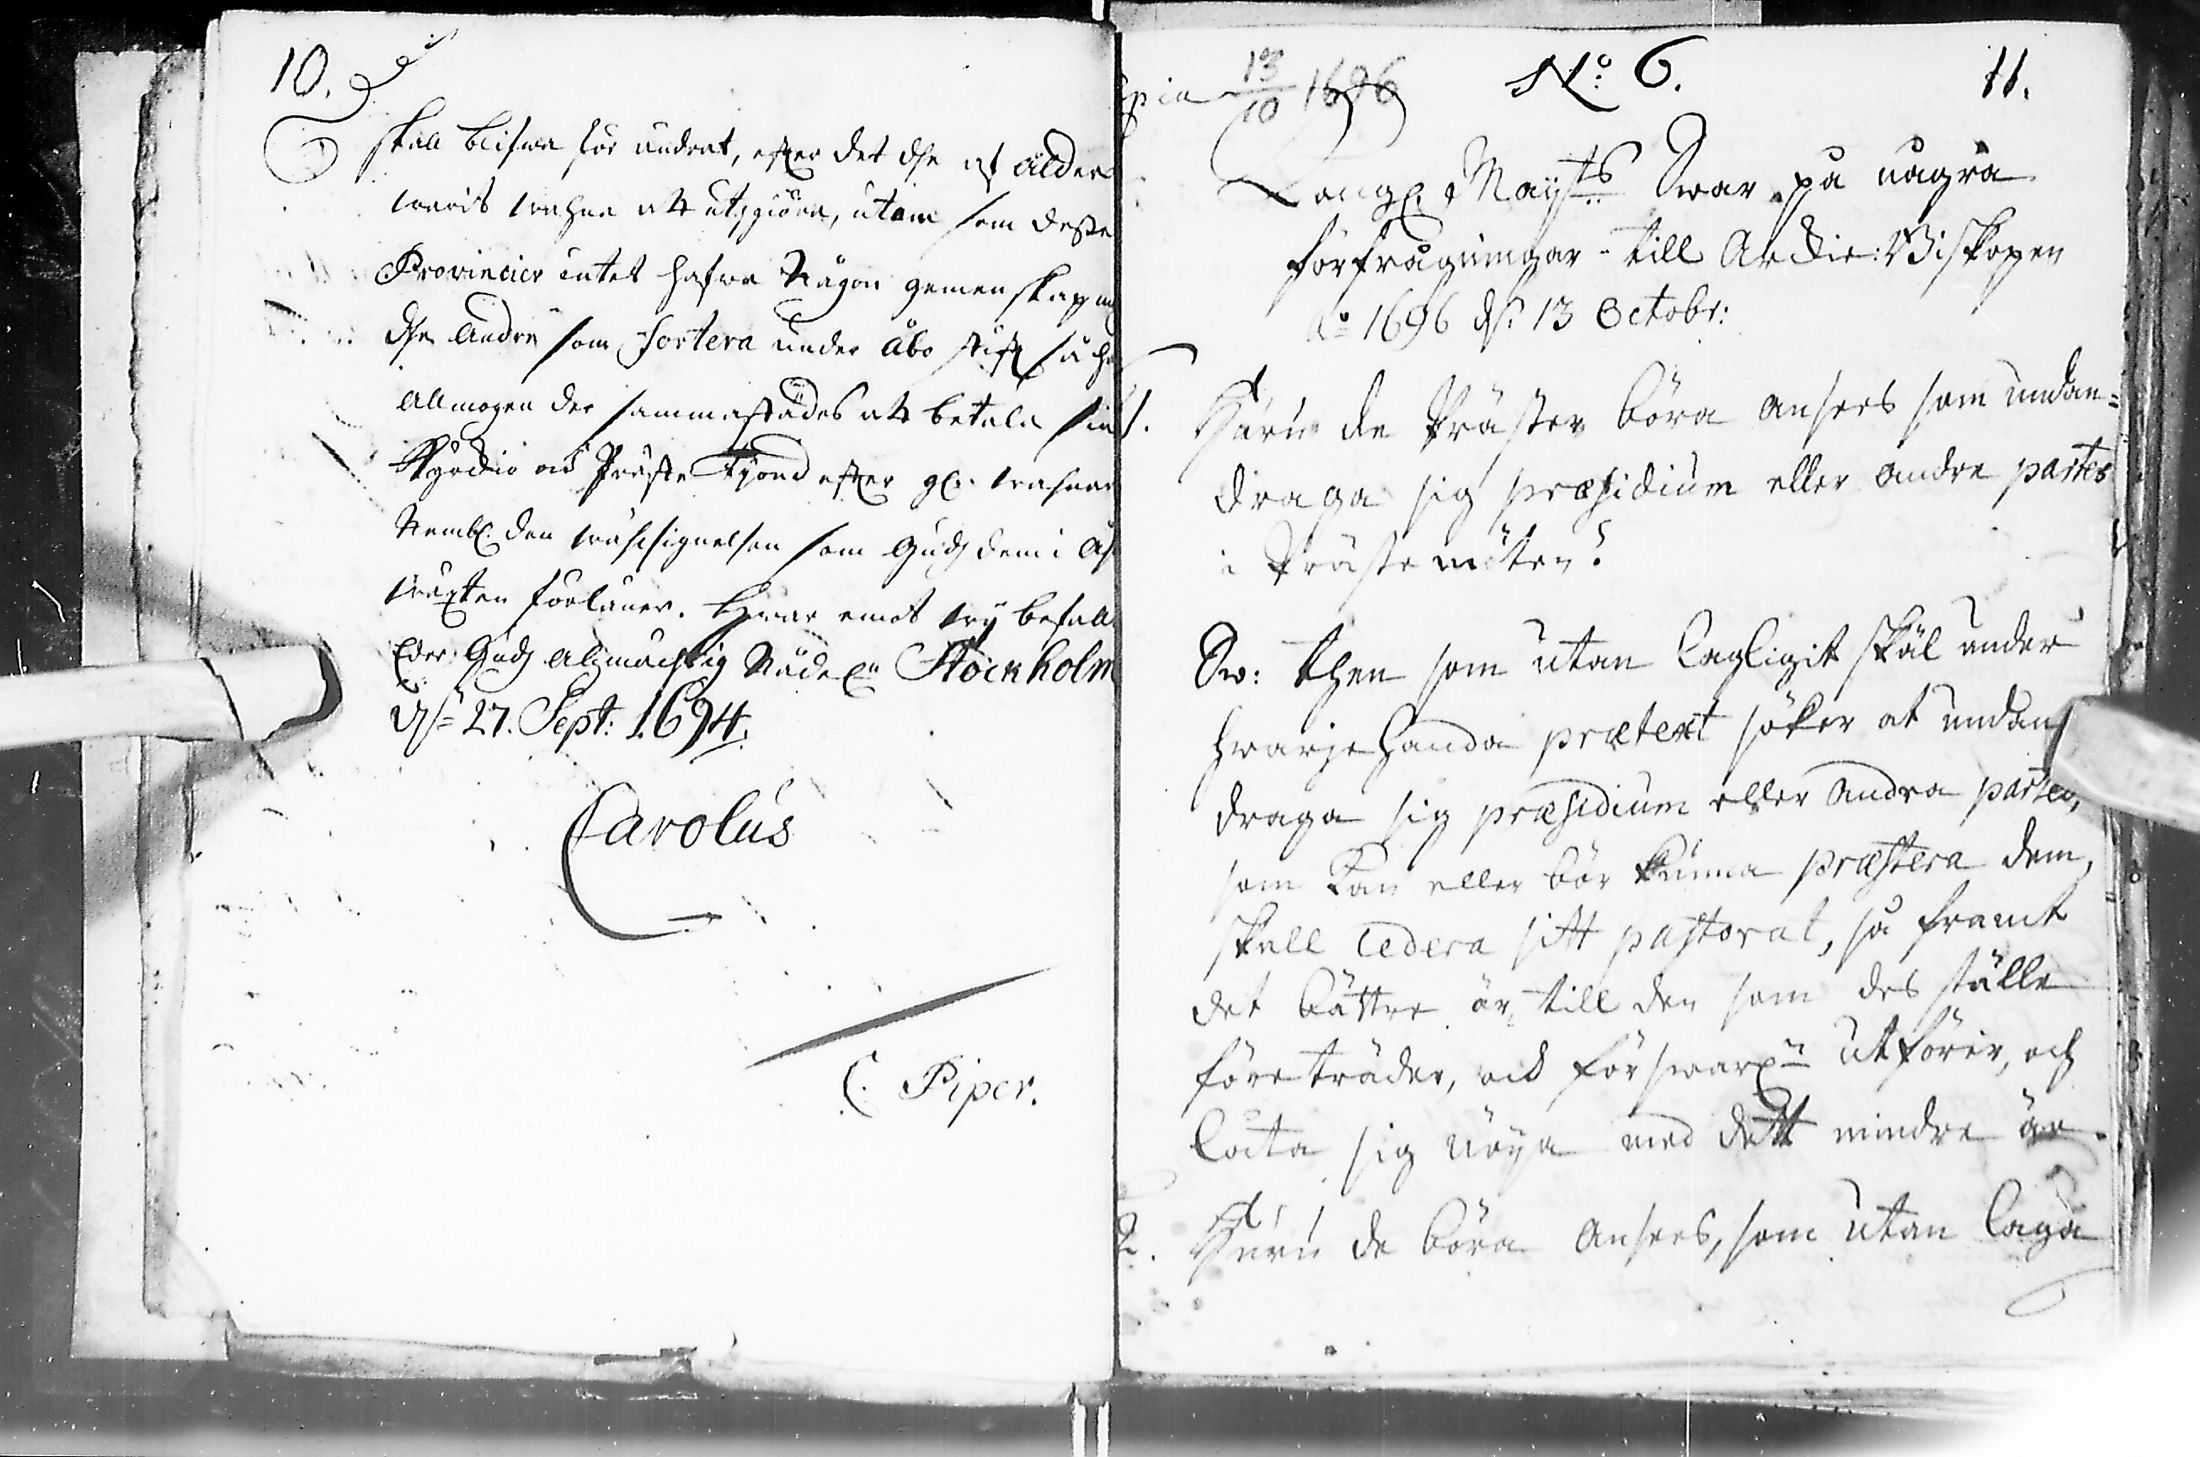 10.
skall blifwa för undrat, efter det dhe af ålder
warit wahne att utgiöra, utom som desse
Provincier intet hafwa Någon gemenskap med
dhe andre som Sortera under Åbo stift så
Allmogen der sammastädes att betala sin
Kyrckio och Präste Tijond efter gl. wahnan
Nembl. den wälsignelsen som Gudh dem i
wäxten förlänar. Hwar emot wij befalla
Eder Gudh alzmächtig Nådel:n Stockholm
dh= 27. Sept: 1694.
Carolus
C. Piper.
13/10 1696 No: 6. 11.
Kongl. Mayts Swar på några
förfrågningar till Archie: Biskopen
Ao 1696 dh: 13 Octobr:
1. Huru de Präster böra ansees som undan=
draga sig præsidium eller andre partes
i Prästemöten?
Sw: then som utan lagligit skäl under
hwarjehanda prætext söker at undan
draga sig præsidium eller andra partes,
som kan eller bör kunna præstera dem,
skall cedera sitt pastorat, så framt
det bättre är, till den som des ställe
företräder, och förswarl:n utförer, och
låta sig nöya med dett mindre är.
2. Huru de böra ansees, som utan laga